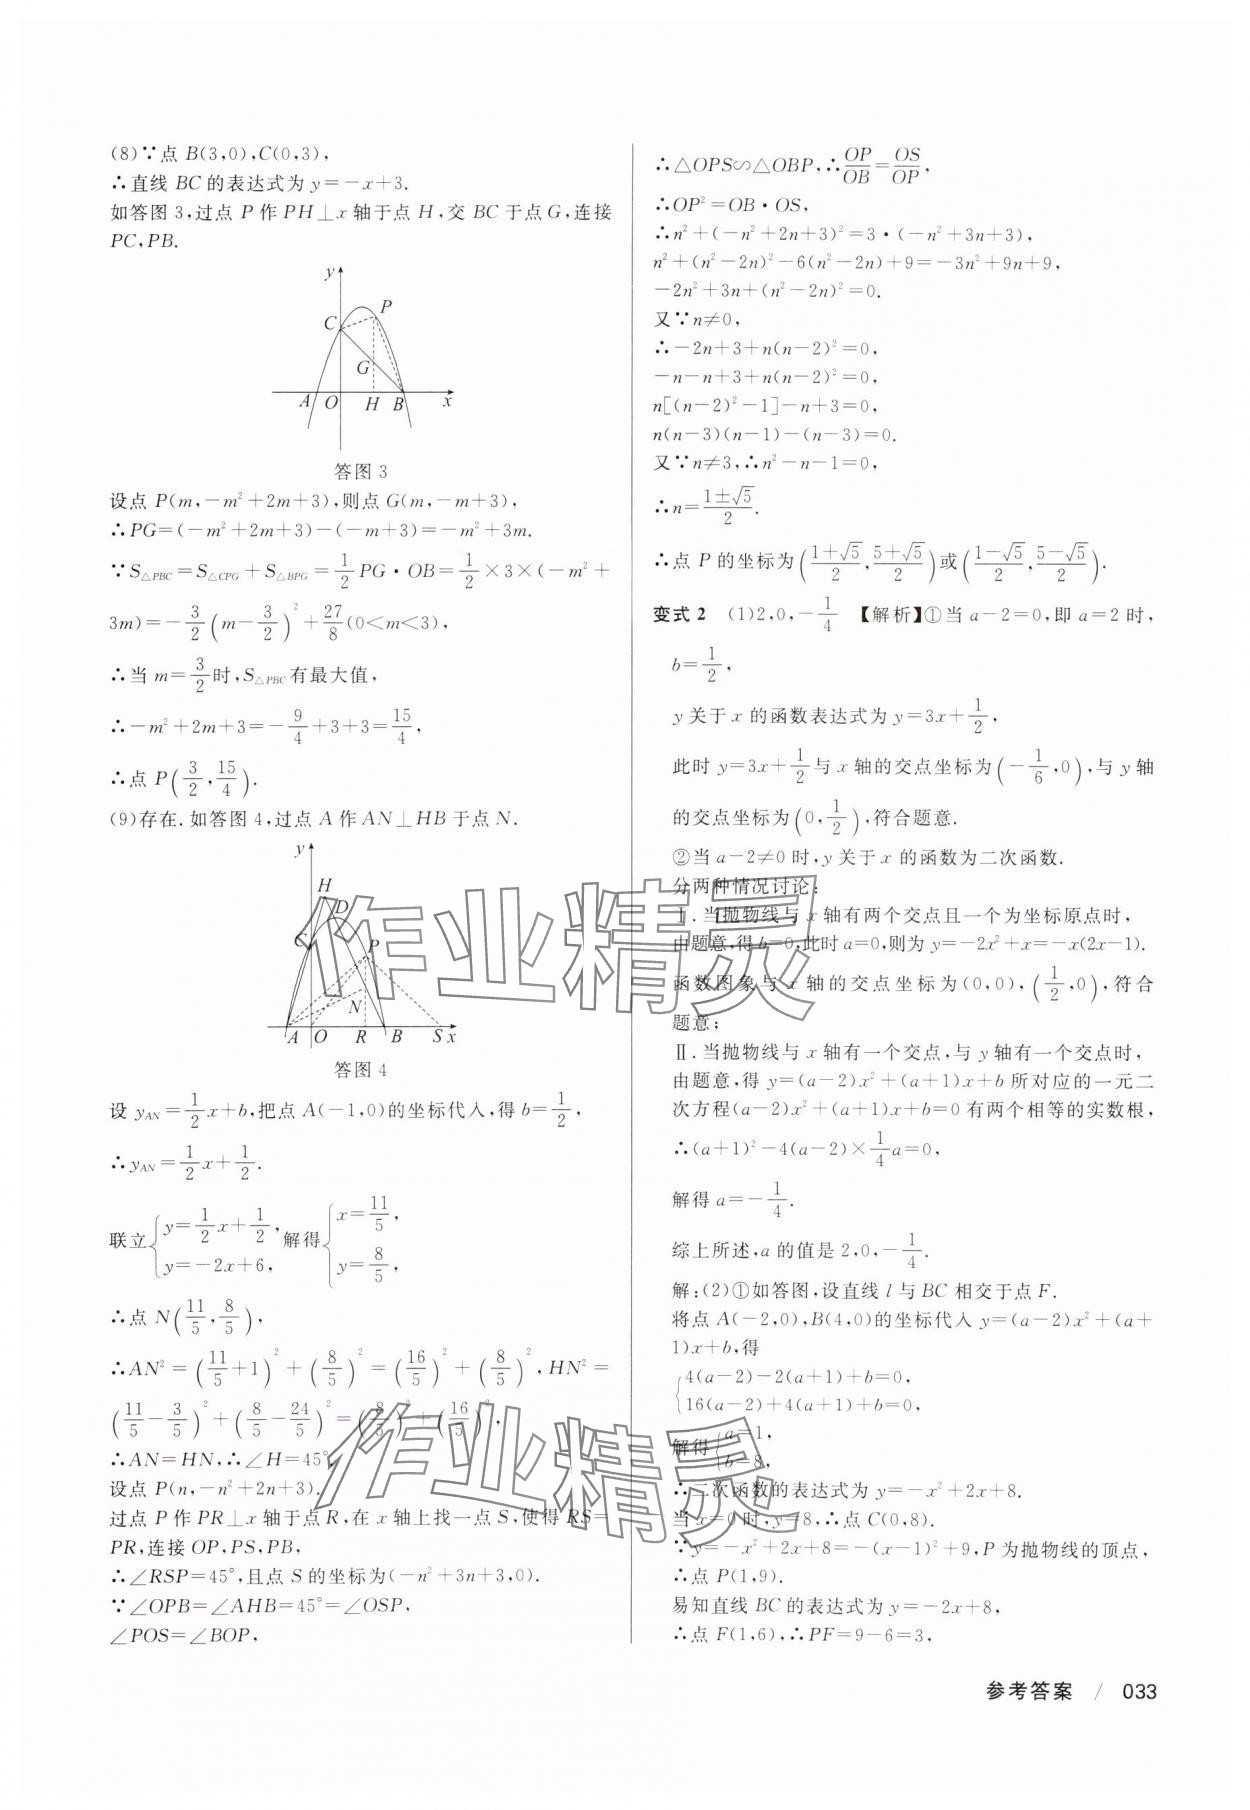 (8)∵点 B(3,0),C(0,3),
∴直线 BC 的表达式为 y=-x+3.
如答图 3,过点 P 作 PH⊥x 轴于点 H,交 BC 于点 G,连接
PC,PB.
y
C
P
G
A O H B x
答图 3
设点 P(m,-m²+2m+3),则点 G(m,-m+3),
∴PG=(-m²+2m+3)-(-m+3)=-m²+3m.
∵S△PBC=S△CPG+S△BPG=1/2 PG·OB=1/2×3×(-m²+
3m)=-3/2(m-3/2)²+27/8(0<m<3),
∴当 m=3/2时,S△PBC有最大值,
∴-m²+2m+3=-9/4+3+3=15/4,
∴点 P(3/2,15/4).
(9)存在.如答图 4,过点 A 作 AN⊥HB 于点 N.
y
H
D
C
P
N
A O R B S x
答图 4
设 yAN=1/2x+b,把点 A(-1,0)的坐标代入,得 b=1/2,
∴yAN=1/2x+1/2.
联立{y=1/2x+1/2, y=-2x+6,解得{x=11/5, y=8/5,
∴点 N(11/5,8/5),
∴AN²=(11/5+1)²+(8/5)²=(16/5)²+(8/5)²,HN²=
(11/5-3/5)²+(8/5-24/5)²=(8/5)²+(16/5)²,
∴AN=HN,∴∠H=45°.
设点 P(n,-n²+2n+3).
过点 P 作 PR⊥x 轴于点 R,在 x 轴上找一点 S,使得 RS=
PR,连接 OP,PS,PB,
∴∠RSP=45°,且点 S 的坐标为(-n²+3n+3,0).
∵∠OPB=∠AHB=45°=∠OSP,
∠POS=∠BOP,
∴△OPS∽△OBP,∴OP/OB=OS/OP,
∴OP²=OB·OS,
∴n²+(-n²+2n+3)²=3·(-n²+3n+3),
n²+(n²-2n)²-6(n²-2n)+9=-3n²+9n+9,
-2n²+3n+(n²-2n)²=0.
又∵n≠0,
∴-2n+3+n(n-2)²=0,
-n-n+3+n(n-2)²=0,
n[(n-2)²-1]-n+3=0,
n(n-3)(n-1)-(n-3)=0.
又∵n≠3,∴n²-n-1=0,
∴n=(1±√5)/2.
∴点 P 的坐标为((1+√5)/2,(5+√5)/2)或((1-√5)/2,(5-√5)/2).
变式 2 (1)2,0,-1/4 【解析】①当 a-2=0,即 a=2 时,
b=1/2,
y 关于 x 的函数表达式为 y=3x+1/2,
此时 y=3x+1/2与 x 轴的交点坐标为(-1/6,0),与 y 轴
的交点坐标为(0,1/2),符合题意.
②当 a-2≠0 时,y 关于 x 的函数为二次函数.
分两种情况讨论:
Ⅰ.当抛物线与 x 轴有两个交点且一个为坐标原点时,
由题意,得 b=0,此时 a=0,则为 y=-2x²+x=-x(2x-1).
函数图象与 x 轴的交点坐标为(0,0),(1/2,0),符合
题意;
Ⅱ.当抛物线与 x 轴有一个交点,与 y 轴有一个交点时,
由题意,得 y=(a-2)x²+(a+1)x+b 所对应的一元二
次方程(a-2)x²+(a+1)x+b=0 有两个相等的实数根,
∴(a+1)²-4(a-2)×1/4a=0,
解得 a=-1/4.
综上所述,a 的值是 2,0,-1/4.
解:(2)①如答图,设直线 l 与 BC 相交于点 F.
将点 A(-2,0),B(4,0)的坐标代入 y=(a-2)x²+(a+
1)x+b,得
{4(a-2)-2(a+1)+b=0,
16(a-2)+4(a+1)+b=0,
解得{a=1, b=8,
∴二次函数的表达式为 y=-x²+2x+8.
当 x=0时,y=8,∴点 C(0,8).
∵y=-x²+2x+8=-(x-1)²+9,P 为抛物线的顶点,
∴点 P(1,9).
易知直线 BC 的表达式为 y=-2x+8,
∴点 F(1,6),∴PF=9-6=3,
作业精灵
作业精灵
参考答案 / 033